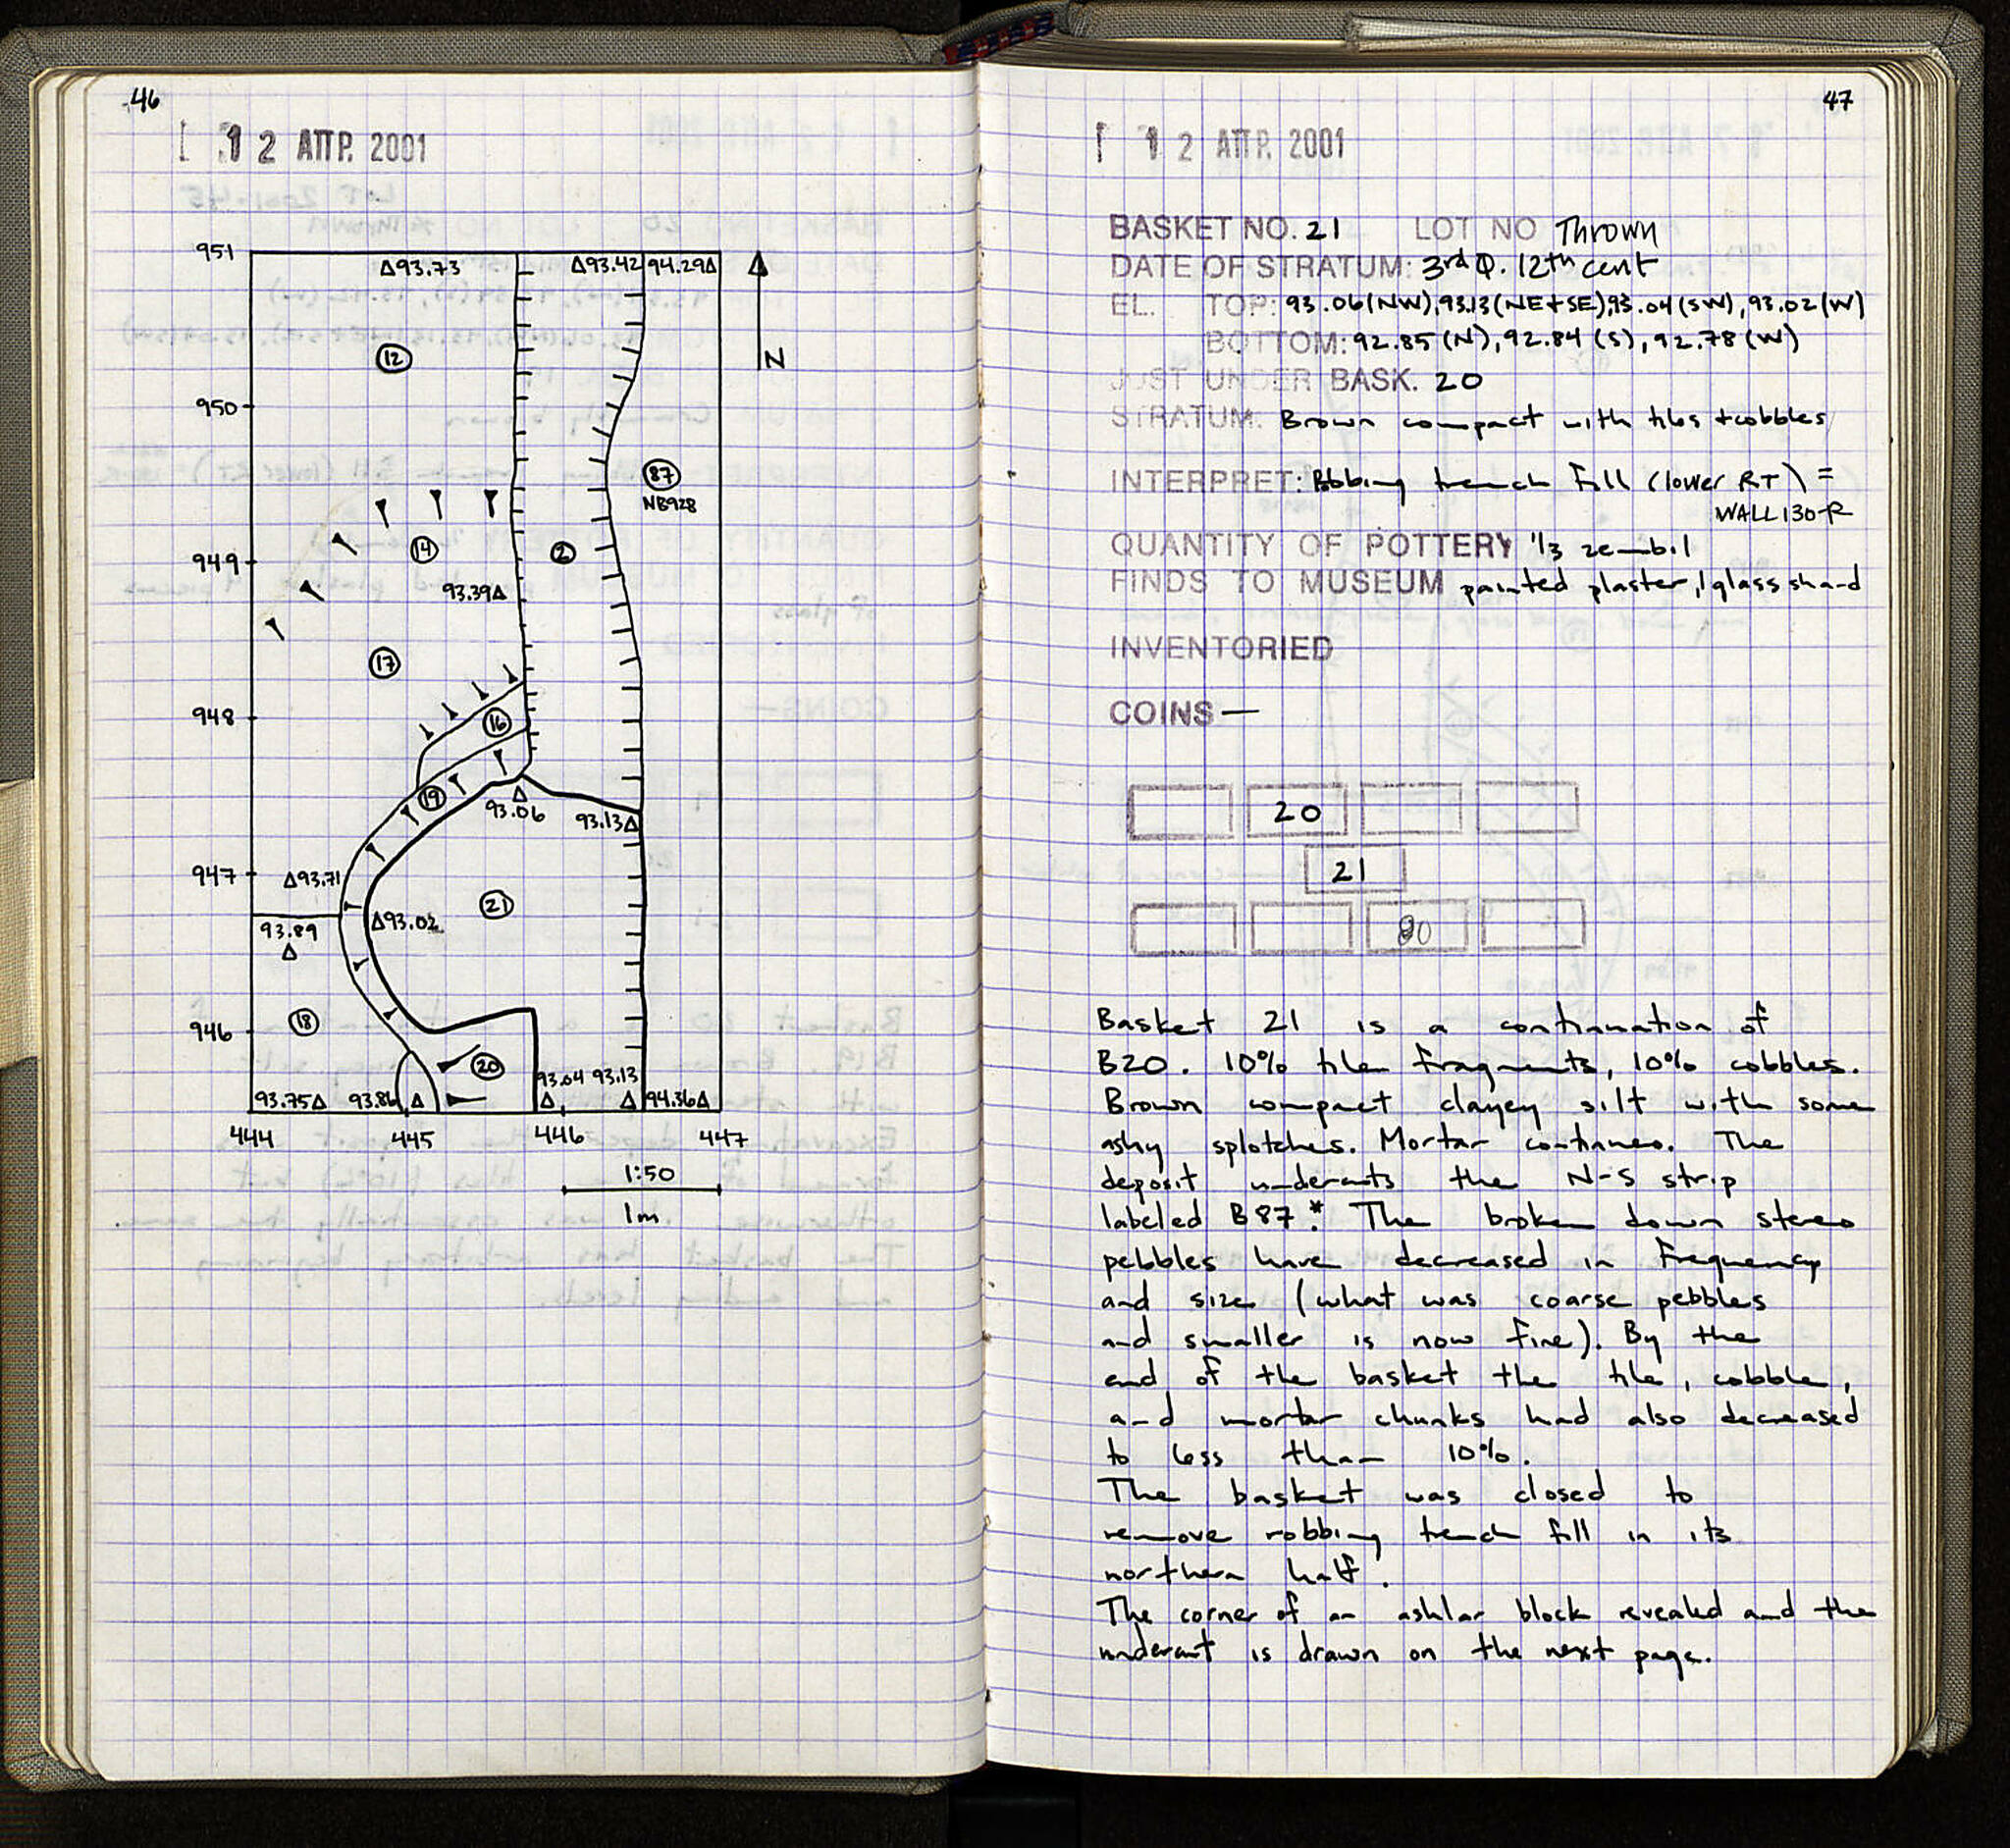 46
12 ΑΠΡ. 2001
951
Δ93.73
Δ93.42
94.29Δ
N
12
950
87
NB928
14
2
949
93.39Δ
17
948
16
19
Δ
93.06
93.13Δ
947
Δ93.71
21
Δ93.02
93.89
Δ
18
946
20
93.04
93.13
93.75Δ
93.86
Δ
Δ
Δ
94.36Δ
444
445
446
447
1:50
1m
47
12 ΑΠΡ. 2001
BASKET NO. 21 LOT NO Thrown
DATE OF STRATUM: 3rd Q. 12th cent
EL. TOP: 93.06(NW), 93.13(NE+SE), 93.04(SW), 93.02(W)
BOTTOM: 92.85(N), 92.84(S), 92.78(W)
JUST UNDER BASK. 20
STRATUM: Brown compact with tiles + cobbles
INTERPRET: Robbing trench fill (lower RT) =
WALL 130-R
QUANTITY OF POTTERY 1/3 zembil
FINDS TO MUSEUM painted plaster, 1 glass shard
INVENTORIED
COINS —
20
21
Basket 21 is a continuation of
B20. 10% tile fragments, 10% cobbles.
Brown compact clayey silt with some
ashy splotches. Mortar continues. The
deposit undercuts the N-S strip
labeled B87.* The broken down stereo
pebbles have decreased in frequency
and size (what was coarse pebbles
and smaller is now fine). By the
end of the basket the tile, cobble,
and mortar chunks had also decreased
to less than 10%.
The basket was closed to
remove robbing trench fill in its
northern half.
The corner of an ashlar block revealed and the
undercut is drawn on the next page.